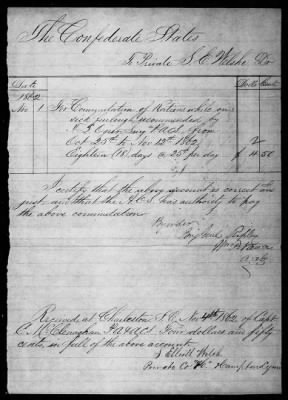 The Confederate States
To Private S. E. Welsh Dr
Date
1862
Dolls Cents
Nov 1 For Commutation of Rations while on
sick furlough recommended by
Surg PACS. from
Oct 25th to Nov 12th 1862
Eighteen (18) days @ 25c per day $ 4.50
I certify that the above account is correct and
just, and that the A.C.S. has authority to pay
the above commutation
Brig Genl
Received at Charleston S.C. Nov 4th 1862 of Capt
C. McClenaghan PACS Four dollars and fifty
cents, in full of the above account.
S Elliott Welsh
Private Co Hampton Legion